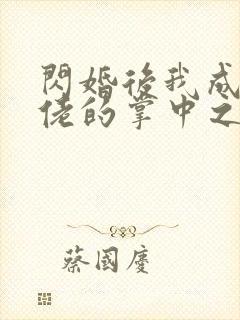 閃婚後我成
佬的掌中之
蔡國慶